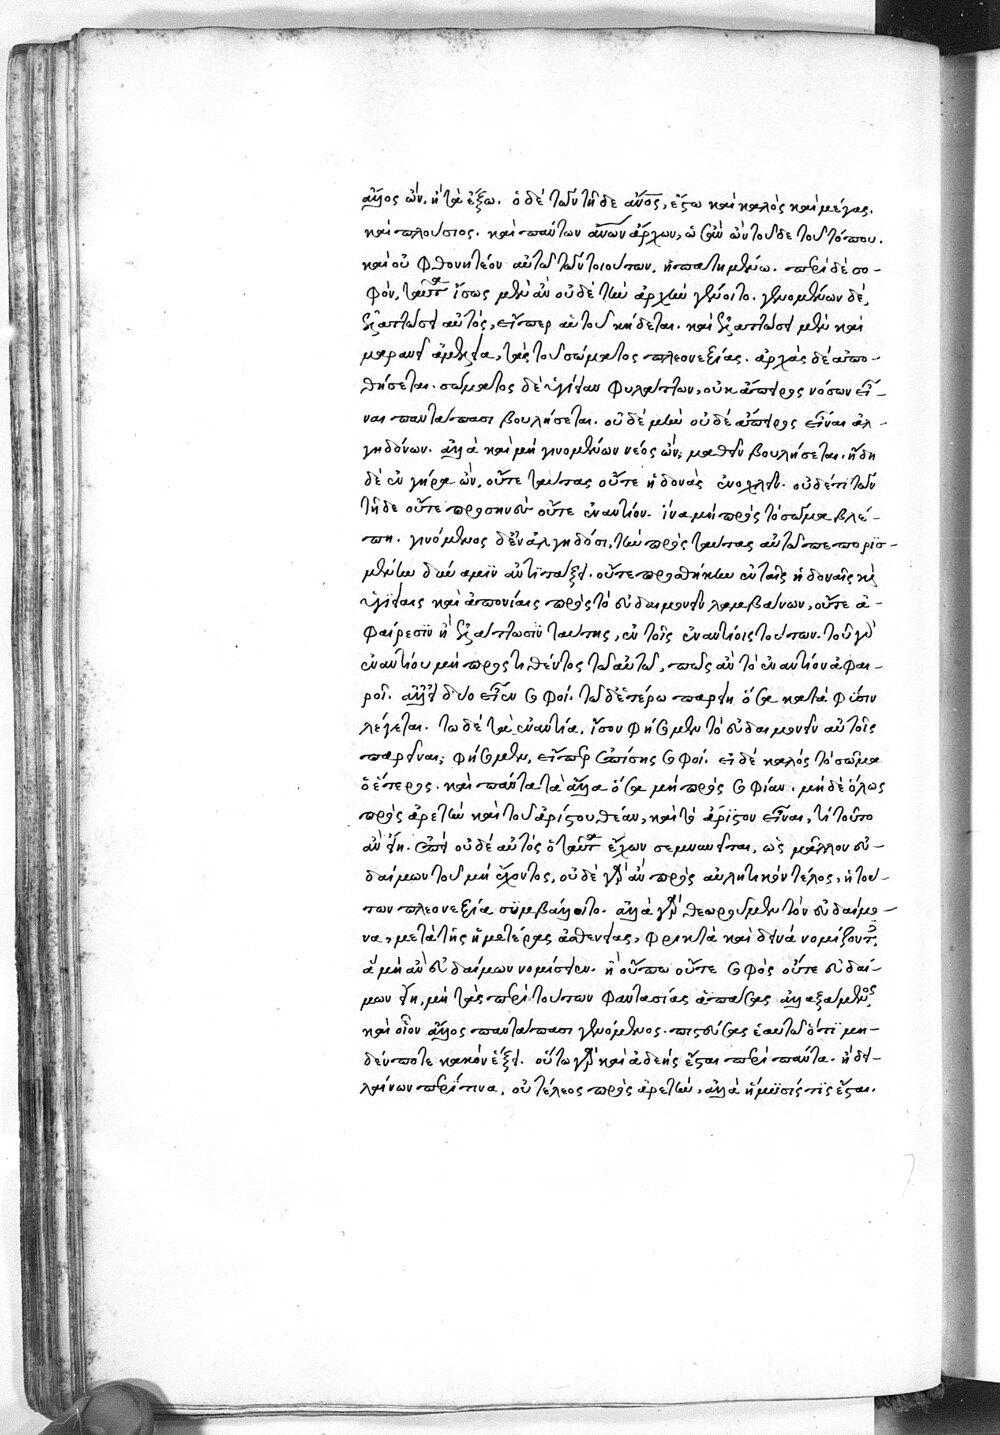 ἄλλος ὤν, ἢ τὰ ἔξω. ὁ δὲ τῶν τῇδε ἄνος, ἔστω καὶ καλὸς καὶ μέγας.
καὶ πλούσιος. καὶ πάντων ἀνων ἄρχων, ὡς ἂν ὢν τοῦδε τοῦ τόπου.
καὶ οὐ φθονητέον αὐτῷ τῶν τοιούτων, ἠπατημένω. περὶ δὲ σο-
φὸν, ταῦτα ἴσως μὲν ἂν οὐδὲ τὴν ἀρχὴν γένοιτο. γενομένων δὲ,
ἐλαττώσει αὐτός, εἴπερ αὑτοῦ κήδεται. καὶ ἐλαττώσει μὲν καὶ
μαρανεῖ ἀμελεία, τὰς τοῦ σώματος πλεονεξίας. ἀρχὰς δὲ ἀπο-
θήσεται. σώματος δὲ ὑγίειαν φυλάττων, οὐκ ἄπειρος νόσων εἶ-
ναι παντάπασι βουλήσεται. οὐδὲ μὴν οὐδὲ ἄπειρος εἶναι ἀλ-
γηδόνων. ἀλλὰ καὶ μὴ γινομένων νέος ὤν, μαθεῖν βουλήσεται. ἤδη
δὲ ἐν γήρα ὤν, οὔτε ταύτας οὔτε ἡδονὰς ἐνοχλεῖν. οὐδέ τι τῶν
τῇδε οὔτε προσηνὲς οὔτε ἐναντίον. ἵνα μὴ πρὸς τὸ σῶμα βλέ-
πη. γινόμενος δ' ἐν ἀλγηδόσι, τὴν πρὸς ταύτας αὐτῷ πεπορισ-
μένην δύναμιν ἀντιτάξει. οὔτε προσθήκην ἐν ταῖς ἡδοναῖς καὶ
ὑγιείαις καὶ ἀπονίαις πρὸς τὸ εὐδαιμονεῖν λαμβάνων, οὔτε ἀ-
φαίρεσιν ἢ ἐλάττωσιν ταύτης, ἐν τοῖς ἐναντίοις τούτων. τοῦ γὰρ
ἐναντίου μὴ προστιθέντος τῷ αὐτῷ, πῶς ἂν τὸ ἐναντίον ἀφαι-
ροῖ. ἀλλ' εἰ δύο εἶεν σοφοί. τῷ δὲ ἑτέρω παρείη ὅσα κατὰ φύσιν
λέγεται. τῷ δὲ τὰ ἐναντία, ἴσον φήσομεν τὸ εὐδαιμονεῖν αὐτοῖς
παρεῖναι; φήσομεν, εἴπερ ἐπίσης σοφοί. εἰ δὲ καλὸς τὸ σῶμα
ὁ ἕτερος. καὶ πάντα τὰ ἄλλα ὅσα μὴ πρὸς σοφίαν. μηδὲ ὅλως
πρὸς ἀρετὴν καὶ τοῦ ἀρίστου θέαν, καὶ τὸ ἄριστον εἶναι, τί τοῦτο
ἂν εἴη. ἐπεὶ οὐδὲ αὐτὸς ὁ ταῦτα ἔχων σεμνυνεῖται, ὡς μᾶλλον εὐ-
δαίμων τοῦ μὴ ἔχοντος, οὐδὲ γὰρ ἂν πρὸς αὐλητικὸν τέλος, ἡ τού-
των πλεονεξία συμβάλλοιτο. ἀλλὰ γὰρ θεωροῦμεν τὸν εὐδαίμο-
να, μετὰ τῆς ἡμετέρας ἀσθενείας, φρικτὰ καὶ δεινὰ νομίζοντες
ἃ μὴ ἂν εὐδαίμων νομίσειεν. ἢ οὔπω οὔτε σοφὸς οὔτε εὐδαί-
μων εἴη, μὴ τὰς περὶ τούτων φαντασίας ἁπάσας ἀλλαξάμενος
καὶ οἷον ἄλλος παντάπασι γενόμενος. πιστεύσας ἑαυτῷ ὅτι μη-
δέν ποτε κακὸν ἕξει. οὕτω γὰρ καὶ ἀδεὴς ἔσται περὶ πάντα. ἢ δει-
λαίνων περί τινα, οὐ τέλεος πρὸς ἀρετὴν, ἀλλὰ ἥμισύς τις ἔσται.